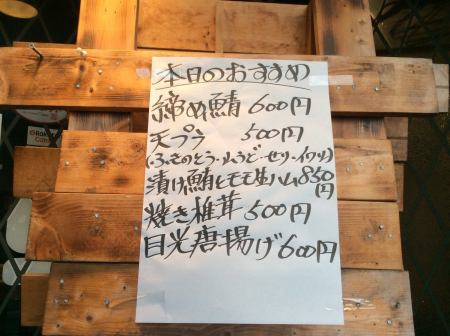 本日のおすすめ
締め鯖 600円
天プラ 500円
(ふきのとう・山うど・せり・イワシ)
漬け鮪とモモ生ハム850円
焼き椎茸500円
目光唐揚げ600円